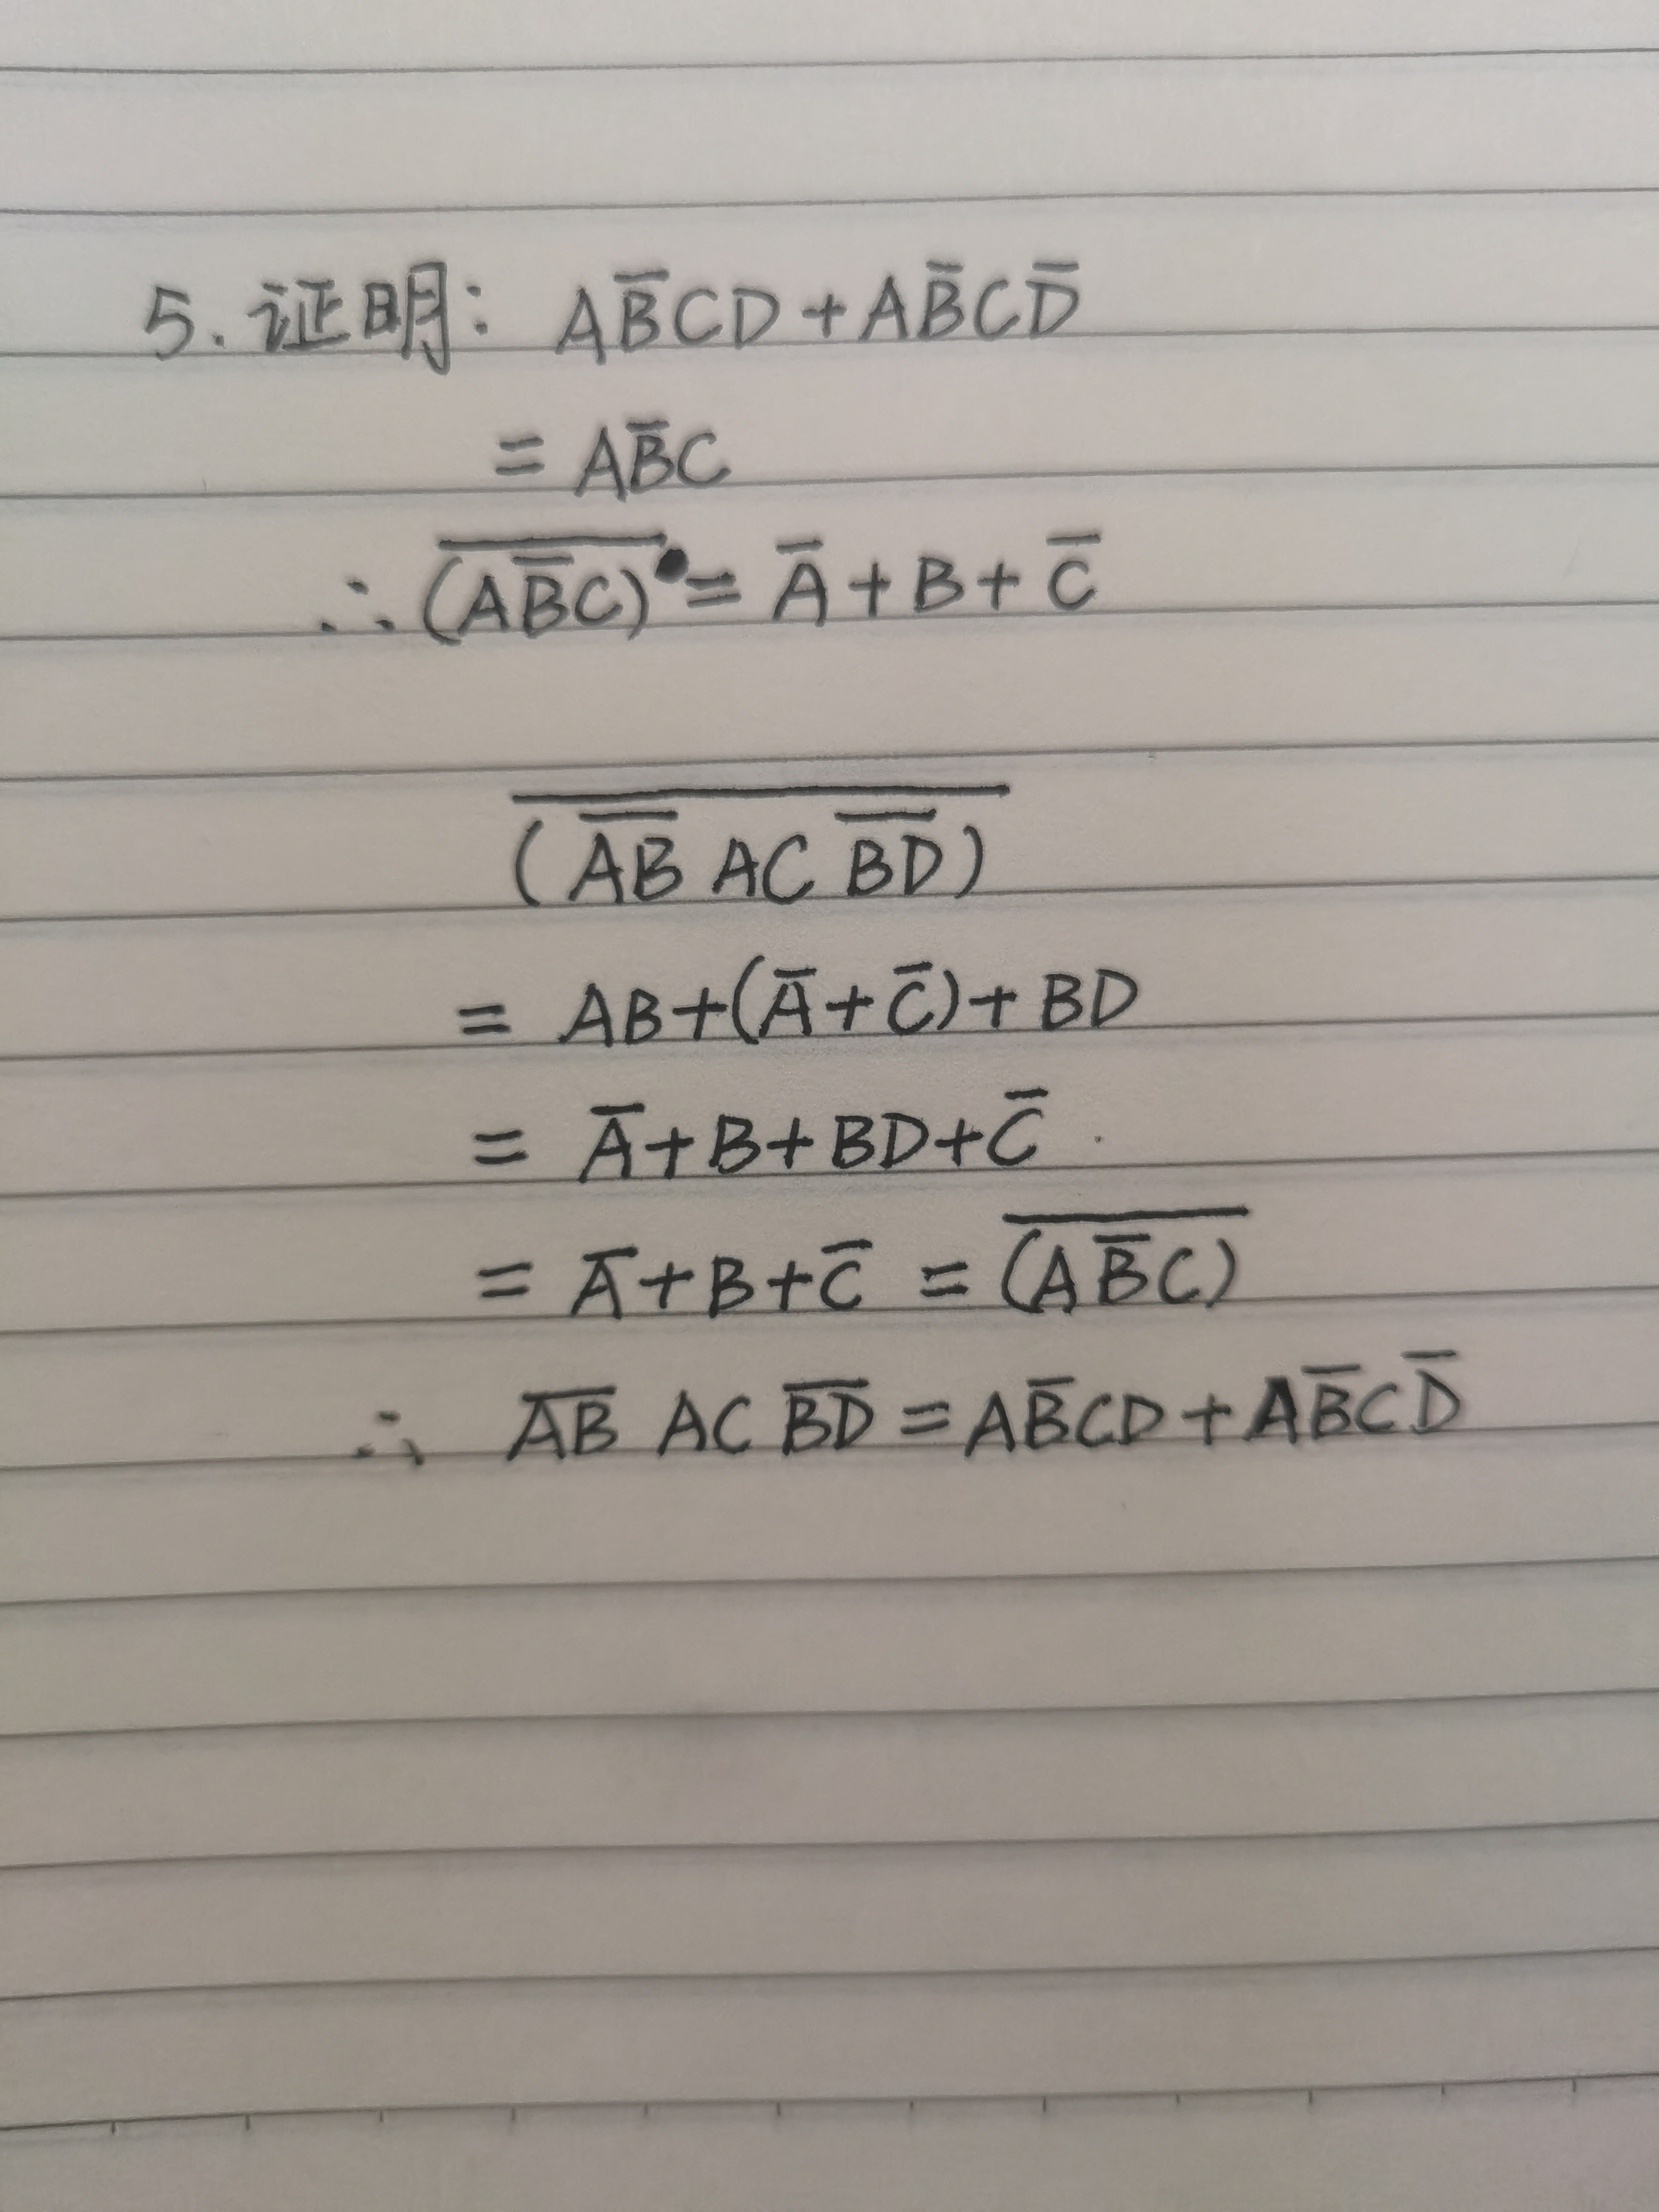 5. 证明: AB̅CD + AB̅CD̅
= AB̅C
∴ \overline{(AB̅C)} = A̅ + B + C̅
\overline{(\overline{AB} AC \overline{BD})}
= AB + (A̅ + C̅) + BD
= A̅ + B + BD + C̅
= A̅ + B + C̅ = \overline{(AB̅C)}
∴ \overline{AB} AC \overline{BD} = AB̅CD + AB̅CD̅